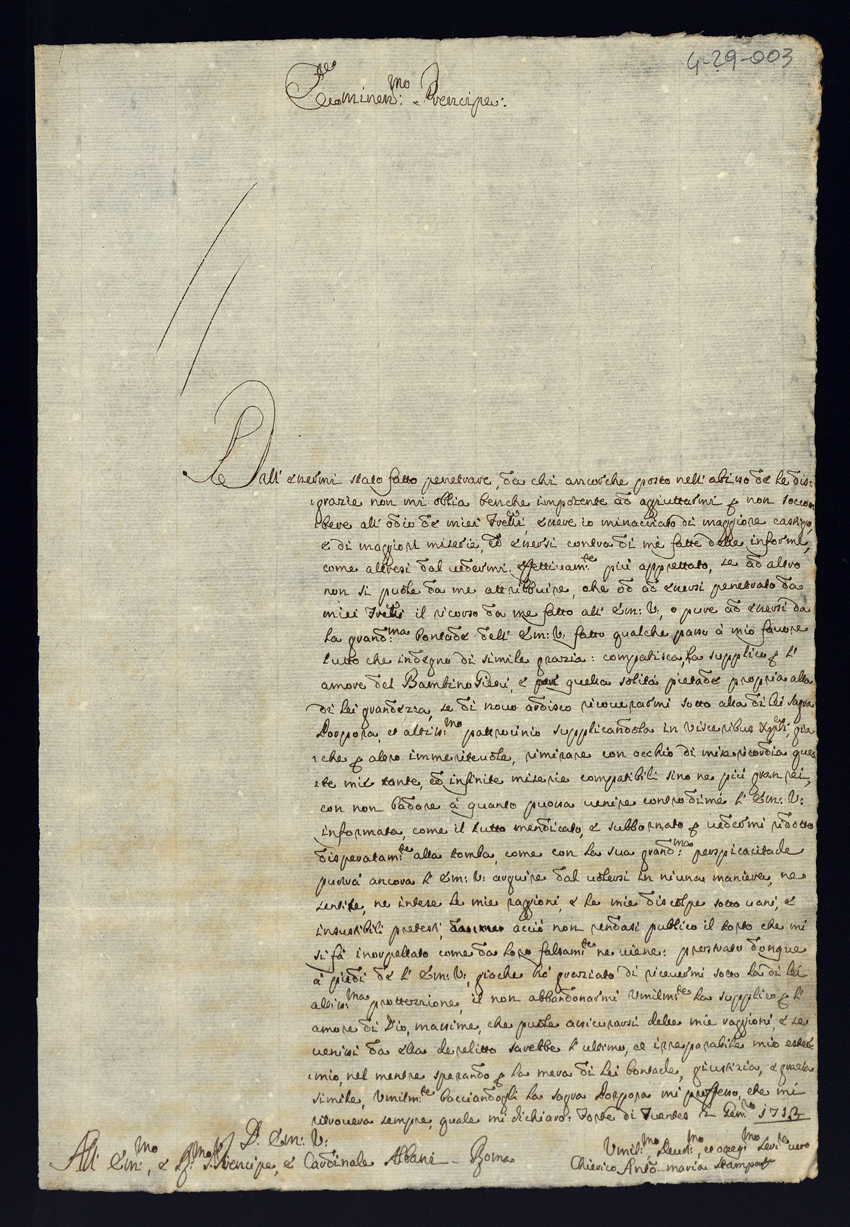 4-29-003
Eminen:mo Prencipe:
Dall' essermi stato fatto penetrare, da chi ancorche posto nell' abisso de le dis=
grazie non mi oblia benche impotente ad aggiuttarmi p non soccom
bere all' odio de miei essere io minacciato di maggiore castigo
e di maggiori miserie, ed essersi contra di me fatte delle informi,
come altresi dal vedermi effettivam:te più apprettato, se ad altro
non si puole da me attribbuire, che od ad essersi penetrato da
miei il ricorso da me fatto all' Em: V, o pure ad essersi da
la grand:ma bontade dell' Em: V. fatto qualche passo à mio favore
tutto che indegno di simile grazia: compatisca, La supplico p l'
amore del Bambino Giesù, e quella solita pietade propria alla
di lei grandezza, se di novo ardisco ricoverarmi sotto alla di lei sagra
Porpora, et altiss:mo pattrocinio supplicandola in visceribus Xpti, gia
che p altro immeritevole, rimirare con occhio di misericordia que
ste mie tante, ed infinite miserie compatibili sino ne più gran rei,
con non badare à quanto puova venire contro di me l' Em: V:
informata, come il tutto mendicato, e subbornato p vedermi ridotto
disperatam:te alla tomba, come con la sua grand:ma perspicacitade
purrà ancora l' Em: V: arguire dal volersi in niuna maniera, ne
sentite, ne intese le mie raggioni, e le mie discolpe sotto vani, e
insusibili pretesti, acciò non rendasi publico il torto che mi
si fà inorpellato come da loro falsam:te ne viene: prostrato donque
à piedi de l' Em: V, gioche hà graziato di ricevermi sotto la di lei
altiss:ma prottezzione, il non abbandonarmi Umilm:te La supplico p l'
amore di Dio, massime, che puole assicurarsi delle mie raggioni, e se
venissi da ella derelitto sarebbe l' ultimo, et irreparabile mio ester=
minio, nel mentre sperando p la mera di Lei bontade, giustizia, e grazia
simile, Umilm:te bacciandogli la sagra Porpora mi professo, che mi
ritroverà sempre, quale mi dichiaro: Forte di 2 Gen:ro 1713
D. Em: V:
All' Em:mo, e R:mo Prencipe, e Cardinale Albani - Roma
Umil:mo, Devot:mo, et obeg:mo Ser:re vero
Chierico Anto: maria Stampa